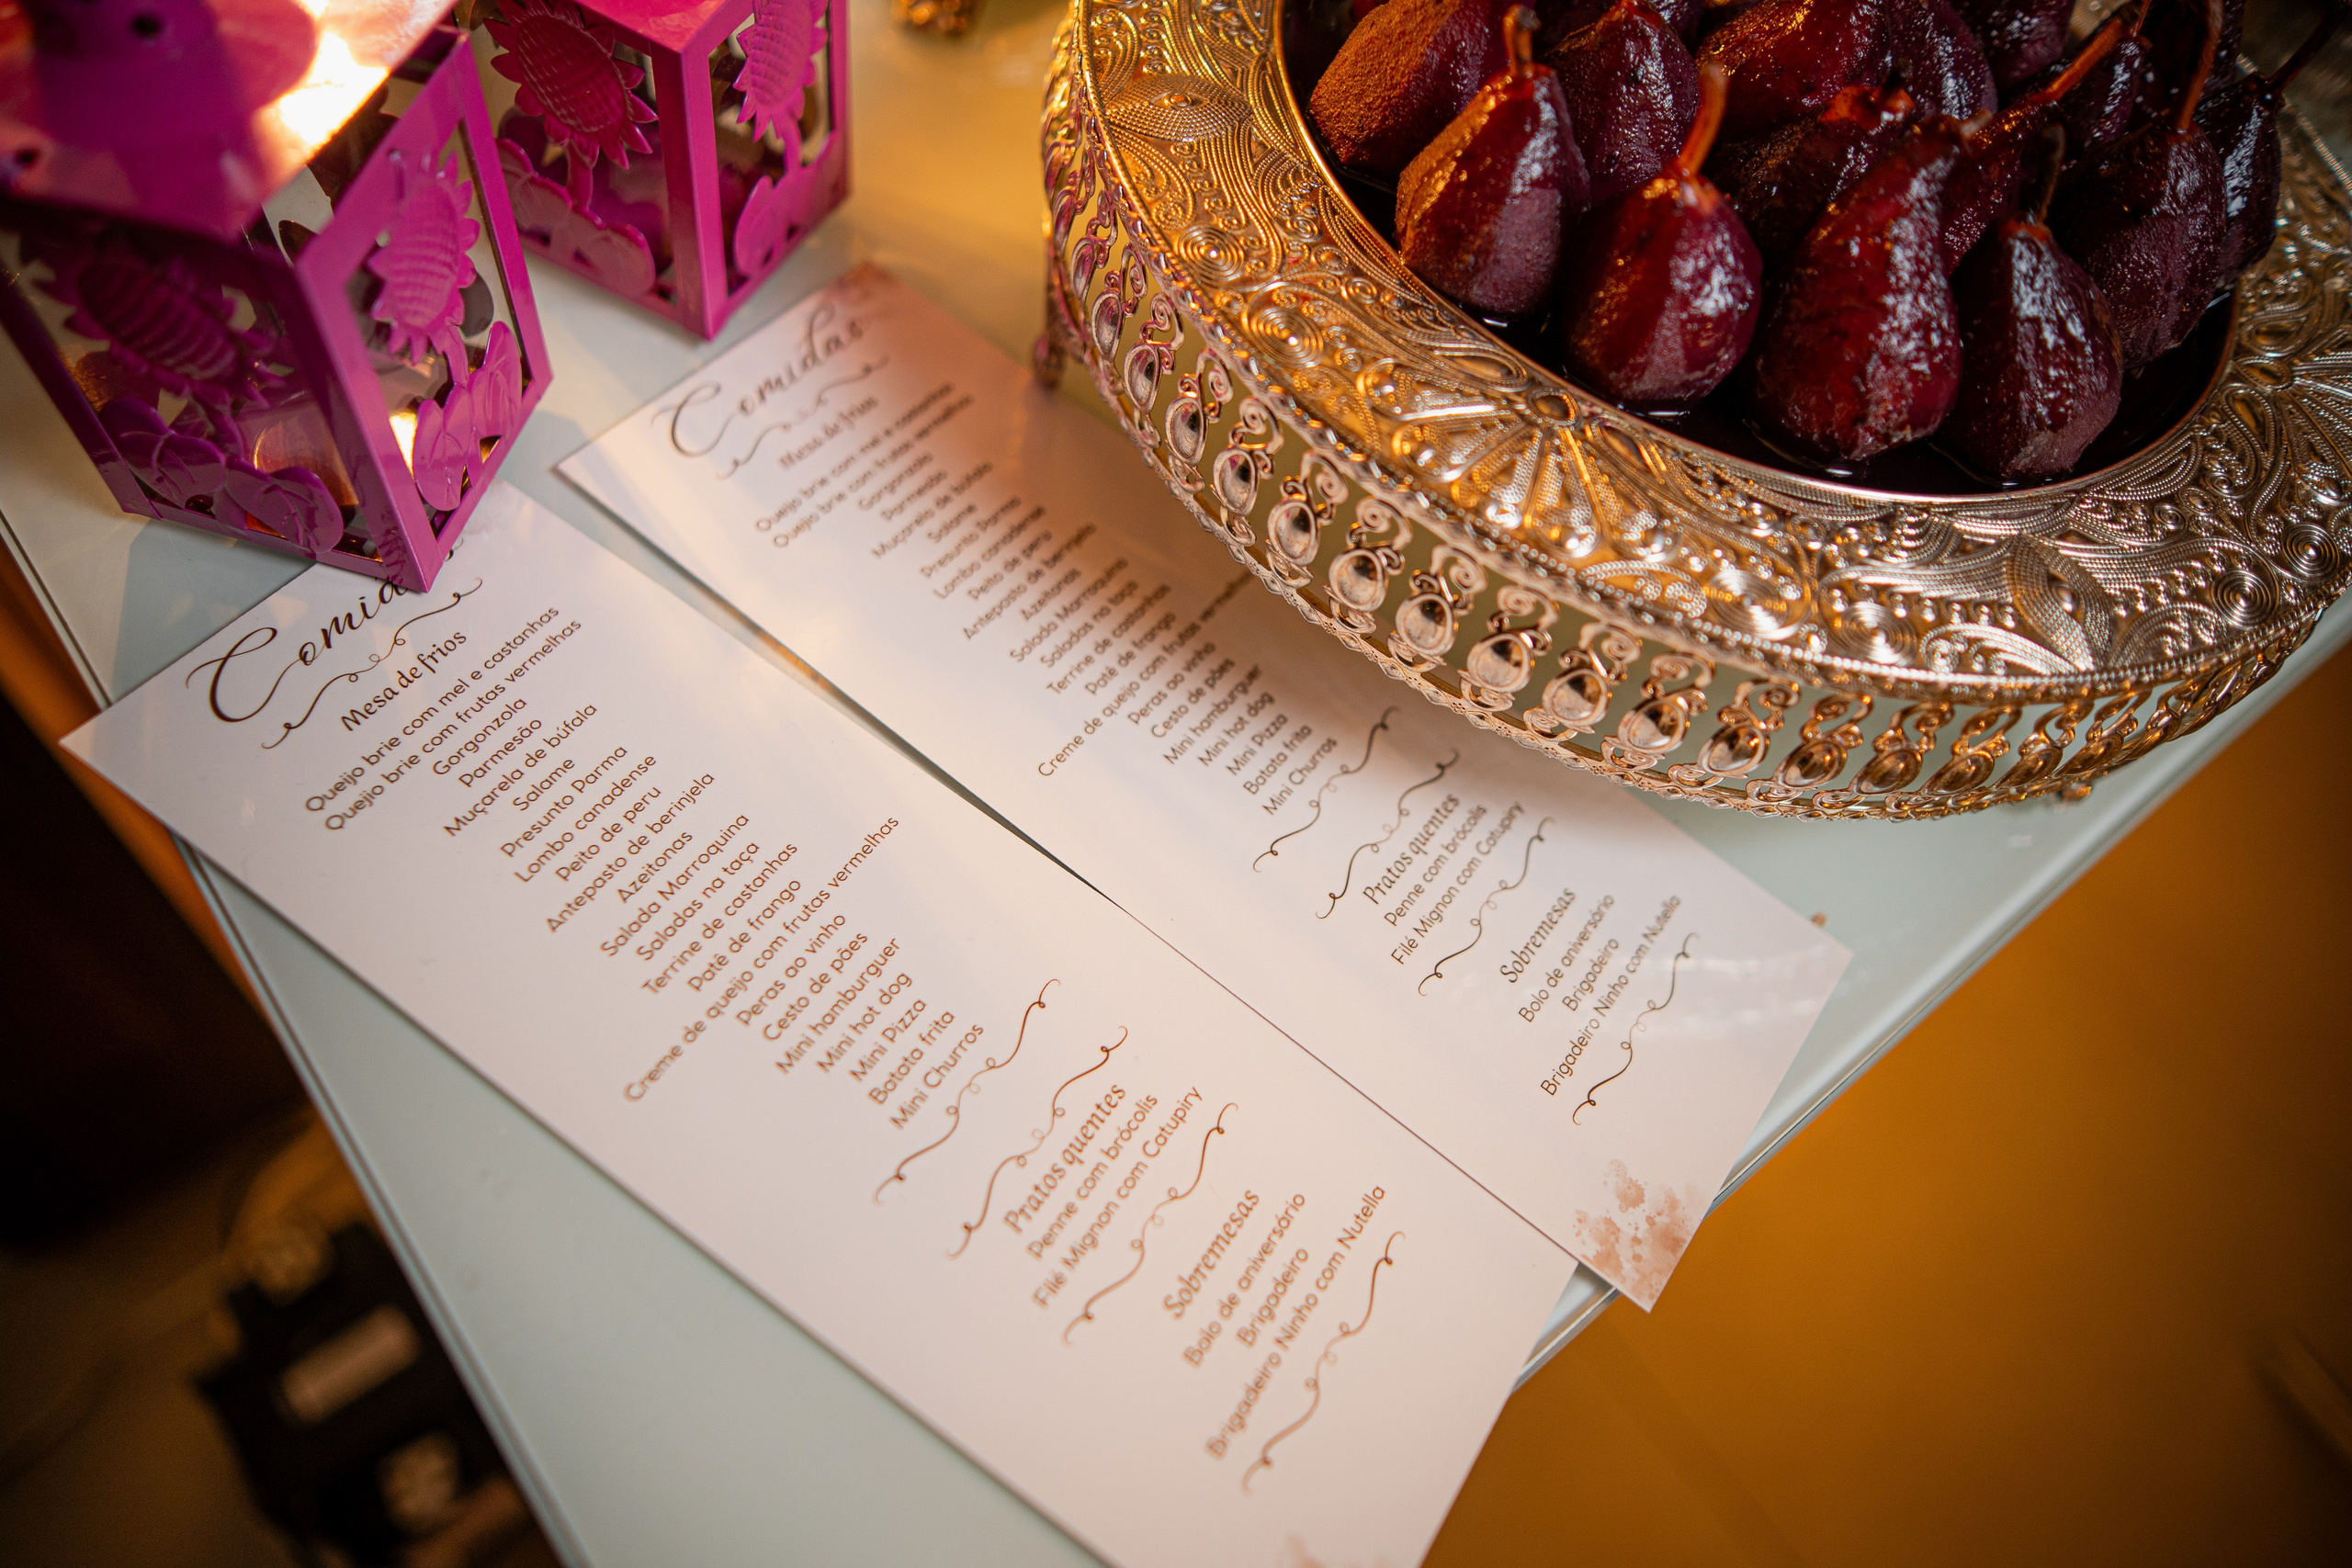 Comidas
Mesa de frios
Queijo brie com mel e castanhas
Queijo brie com frutas vermelhas
Gorgonzola
Parmesão
Muçarela de búfala
Salame
Presunto Parma
Lombo canadense
Peito de peru
Antepasto de berinjela
Azeitonas
Salada Marroquina
Saladas na taça
Terrine de castanhas
Patê de frango
Creme de queijo com frutas vermelhas
Peras ao vinho
Cesto de pães
Mini hamburguer
Mini hot dog
Mini Pizza
Batata frita
Mini Churros
Pratos quentes
Penne com brócolis
Filé Mignon com Catupiry
Sobremesas
Bolo de aniversário
Brigadeiro
Brigadeiro Ninho com Nutella
Comidas
Mesa de frios
Queijo brie com mel e castanhas
Queijo brie com frutas vermelhas
Gorgonzola
Parmesão
Muçarela de búfala
Salame
Presunto Parma
Lombo canadense
Peito de peru
Antepasto de berinjela
Azeitonas
Salada Marroquina
Saladas na taça
Terrine de castanhas
Patê de frango
Creme de queijo com frutas vermelhas
Peras ao vinho
Cesto de pães
Mini hamburguer
Mini hot dog
Mini Pizza
Batata frita
Mini Churros
Pratos quentes
Penne com brócolis
Filé Mignon com Catupiry
Sobremesas
Bolo de aniversário
Brigadeiro
Brigadeiro Ninho com Nutella